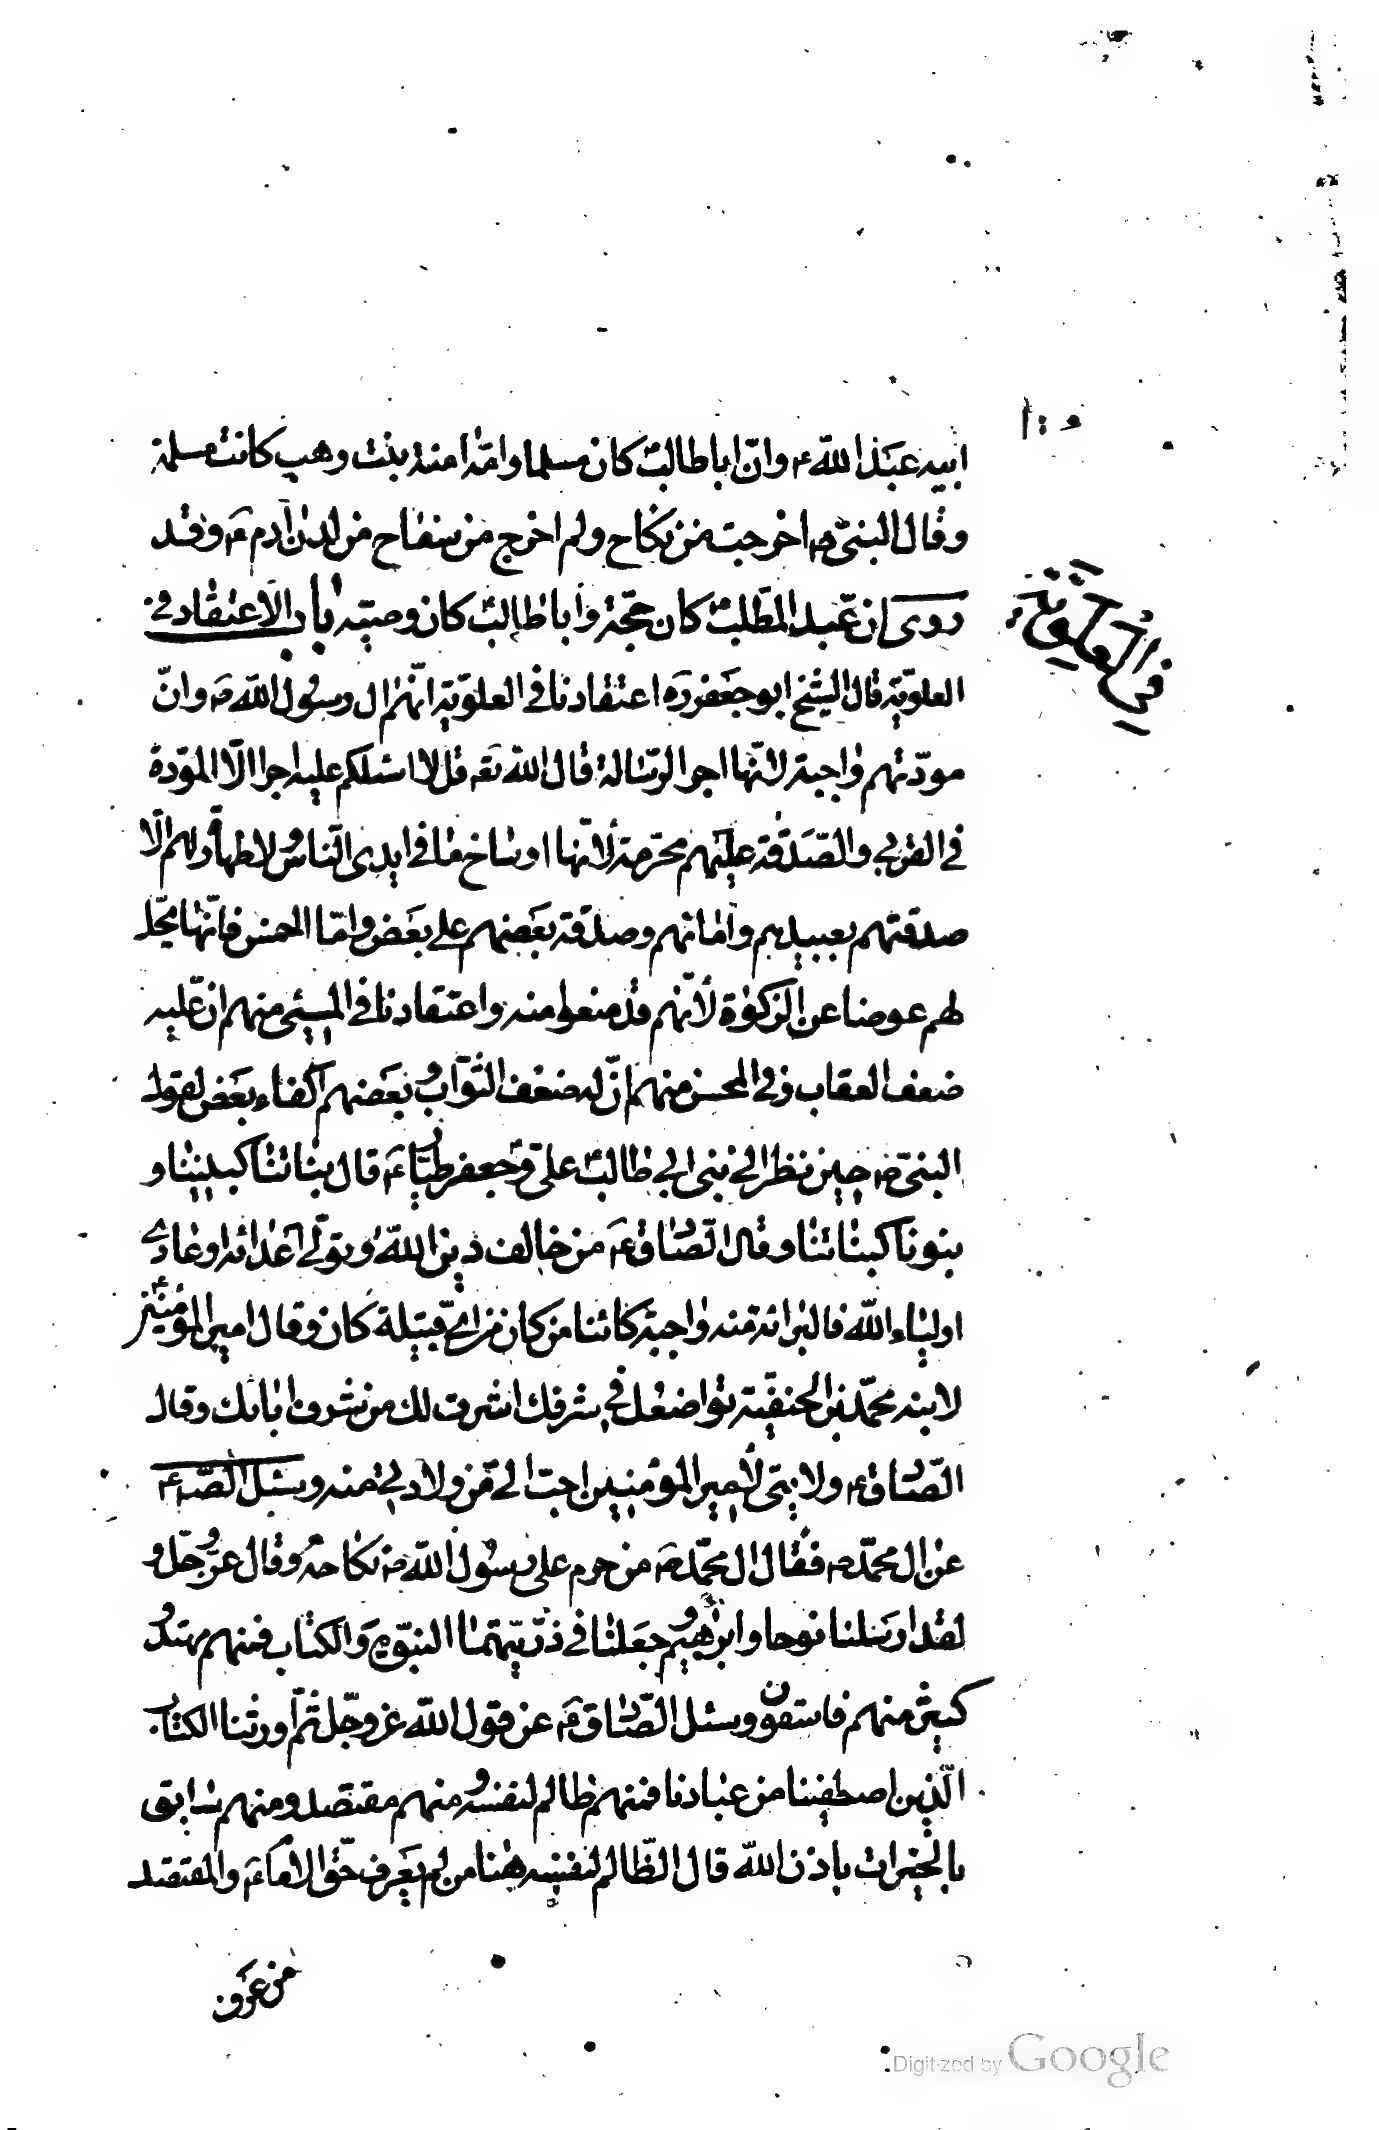 ابيه عبد الله ء وانّ ابا طالبٌ كان مسلما وامّه امنة بنت وهب كانت مسلمة
وقال النبىّ ص اخرجت من نكاح ولم اخرج من سفاح من لدن آدم ء وقد
روى ان عبد المطّلب كان حجّة وابا طالبٌ كان وصيّه باب الاعتقاد فى
فى العلويّة
العلويّة قال الشيخ ابو جعفر ره اعتقادنا فى العلويّة انّهم ال رسول الله ص وانّ
مودّتهم واجبة لانّها اجر الرّسالة قال الله تعه قل لا اسئلكم عليه اجرا الّا المودة
فى القربى والصّدقة عليهم محرّمة لانّها اوساخ ما فى ايدى النّاس وطهارة لهم الّا
صدقتهم بعبيدهم وامائهم وصدقة بعضهم على بعض وامّا الخمس فانّها تحلّ
لهم عوضا عن الزكوة لأنّهم قد منعوا منه واعتقادنا فى المسيئ منهم ان عليه
ضعف العقاب وفى المحسن منهم انّ له ضعف الثواب وبعضهم اكفاء بعض لقول
النبىّ ص حين نظر الى بنى ابى طالبٌ علىّ وجعفر طيّار ء قال بناتنا كبنينا و
بنونا كبناتنا وقال الصّادق ء من خالف دين الله وتولّى اعدائه او عادى
اولياء الله فالبرائة منه واجبة كائنا من كان من اىّ قبيلة كان وقال امير المؤمنين
لابنه محمّد بن الحنفيّة تواضعك فى شرفك اشرف لك من شرف ابائك وقال
الصّادق ء ولايتى لأمير المؤمنين احبّ الىّ من ولادتى منه وسئل الصّ ء
عن ال محمّد ص فقال ال محمّد ص من حرم على رسول الله ص نكاحه وقال عزّ وجلّ و
لقد ارسلنا نوحا وابراهيم وجعلنا فى ذرّيّتهما النبوّة والكتاب فمنهم مهتد و
كثير منهم فاسقون وسئل الصّادق ء عن قول الله عزّ وجلّ ثم اورثنا الكتاب
الّذين اصطفينا من عبادنا فمنهم ظالم لنفسه ومنهم مقتصد ومنهم سابق
بالخيرات باذن الله قال الظّالم لنفسه هنا من لم يعرف حقّ الامام ء والمقتصد
من عرف
Digitized by Google